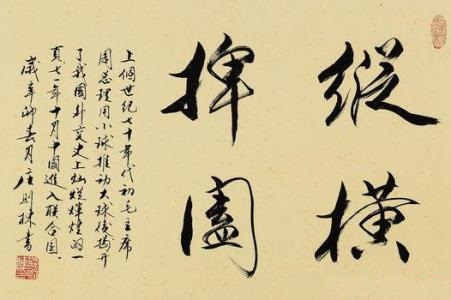 縱橫
捭闔
上個世纪七十年代初毛主席
周总理用小球推动大球後揭开
了我國外交史上灿烂辉煌的一
頁七一年十月中國進入联合國。
歲辛卯春月庄则栋書